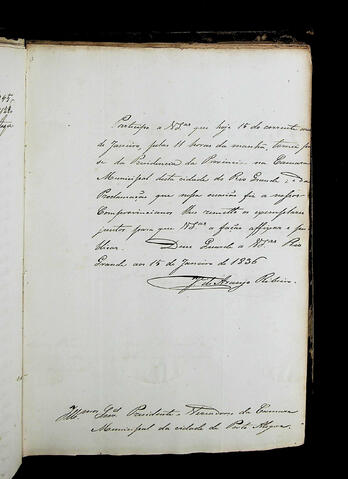 Participo a VSas que hoje 15 do corrente mez
de Janeiro, pelas 11 horas da manhã, tomei pos-
se da Presidencia da Provincia na Camara
Municipal desta cidade do Rio Grande, e da
Proclamação que nessa occasião fiz a nossos
Comprovincianos lhes remetto os exemplares
juntos para que VSas a fação affixar e pu-
blicar. Deus Guarde a VSas Rio
Grande aos 15 de Janeiro de 1836
J. de Araujo Ribeiro
Illmos Snrs Presidente e Vereadores da Camara
Municipal da cidade de Porto Alegre